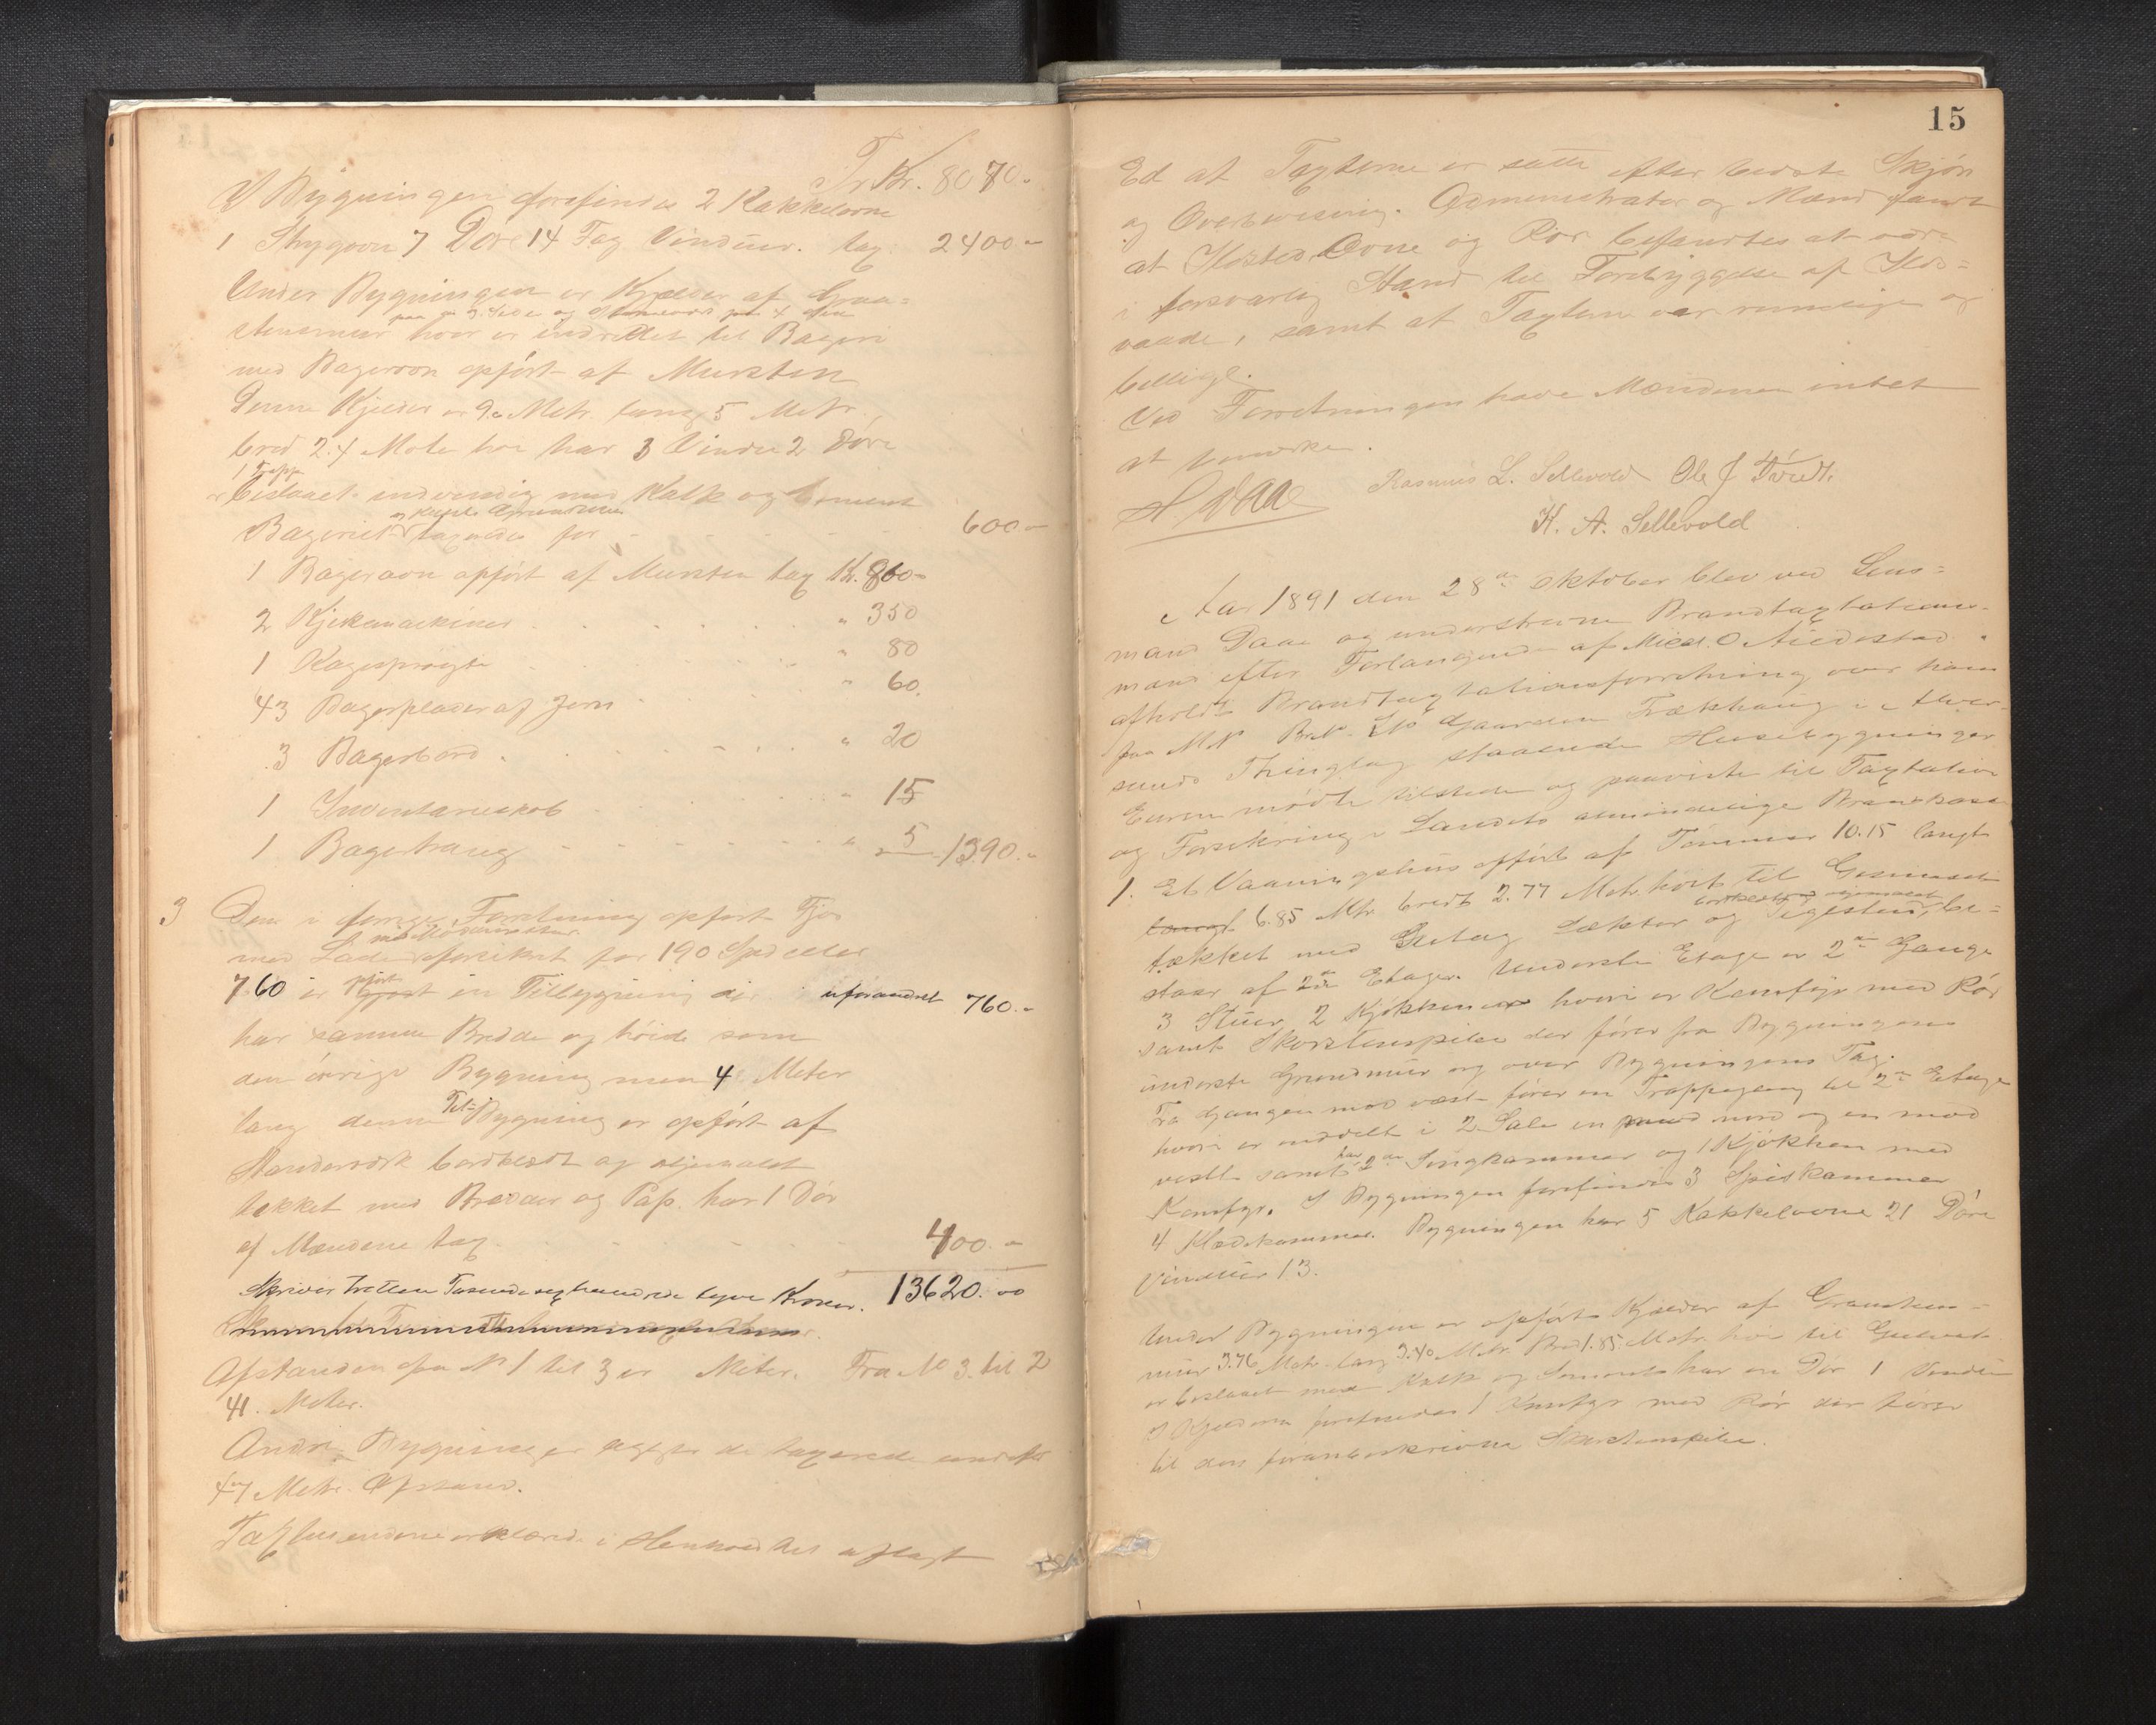 Tr Kr. 8070.
I Bygningen forefindes 2 Kakkelovne
1 Strygovn 7 Døre 14 Fag Vinduer. tax. 2400 –
Under Bygningen er Kjelder af Graa=
stensmur hvor er indrettet til Bageri
med Bagerovn opført af Mursten
Denne Kjelder er 9. Metr. lang 5 Metr.
bred 2.4 Mete høi har 3 Vindu 2 Døre
1 Trapp
er beslaaet indvendig med Kalk og Cement
Bageriet taxeredes for 600 –
1 Bagerovn opført af Mursten tax Kr. 860 –
2 Kjeksmaskiner " 350
1 Kagesprøyte " 80
43 Bagerplader af Jern " 60.
3 Bagerbord " 20
1 Inventarieskab " 15
1 Bagertraug " 5 1390. –
3 Den i forrige Forretning opført Fjøs
med Lade forsikret for 190 Spd eller
760 er opført en Tilbygning der uforandret 760. –
har samme Bredde og høide som
den øvrige Bygning men 4 Meter
lang denne Til= Bygning er opført af
Standervørk bordklædt og oljemalet
tækket med Brædder og Pap. har 1 Dør
af Mændene tax 400. –
Skriver tretten Tusende sexhundrede tyve Kroner. 13620. 00
Afstanden fra No 1 til 3 er Meter. Fra No 3. til 2
41. Meter.
Andre Bygninger ligger de taxerede
47 Metr. Afstand.
Taxtmændene erklærede i Henhold til aflagt
15
Ed at Taxterne er satte efter bedste Skjøn
og Overbevisning. Administrator og Mænd fandt
at Ildsted, Ovne og Rør befandtes at være
i forsvarlig Stand til Forebyggelse af Ilds=
vaade, samt at Taxterne var rimelige og
billige.
Ved Forretningen havde Mændene intet
at bemærke.
Rasmus L. Sellevold Ole J Tvedt.
Daae
K. A. Sellevold
Aar 1891 den 28de Oktober blev ved Lens=
mand Daae og understrevne Brandtaxtations-
mænd efter Forlangende af Mics. O
afholdt Brandtaxtationsforretning over hans
paa MN BrN. Gaarden Trækhaug i Alver-
sunds Thinglag staaende Huusebygninger
Eieren mødte tilstede og paaviste til Taxtation
og Forsikring i Landets almindelige Brandkasse
1. Et Vaaningshus opført af Tømmer 10.15 langt
6.85 Mtr bredt 2.77 Metr. høit til Gesimsen
bordklædt og oljemalet
tækket med Sutag Lækter og Tegelsten, be=
staar af 2de Etager. Underste Etage er 2de Gange
3 Stuer 2 Kjøkkener hvori er Komfyr med Rør
samt Skorstenspibe der fører fra Bygningens
underste Grundmuur og over Bygningens Tag.
Fra Gangen mod vest fører en Trappegang til 2de Etage
hvori er inddelt i 2 Sale en mod nord og en mod
vest samt har 2de Sengkammer og 1 Kjøkken med
Komfyr. I Bygningen forefindes 3 Spiskammer
4 Klædekammer. Bygningen har 5 Kakkelovne 21 Døre
Vinduer 13.
Under Bygningen er opført Kjælder af Graasten=
muur 3.76 Metr. lang 3.40 Metr. Bred 1.85 Metr. høi til Gulvet
er beslaaet med Kalk og Sement har en Dør 1 Vindu
I Kjælderen forefindes 1 Komfyr med Rør der fører
til den foranbeskrevne Skorstenspibe.